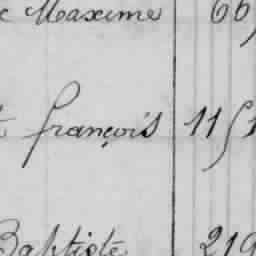 Maxime 66
françois 11
Baptiste 219